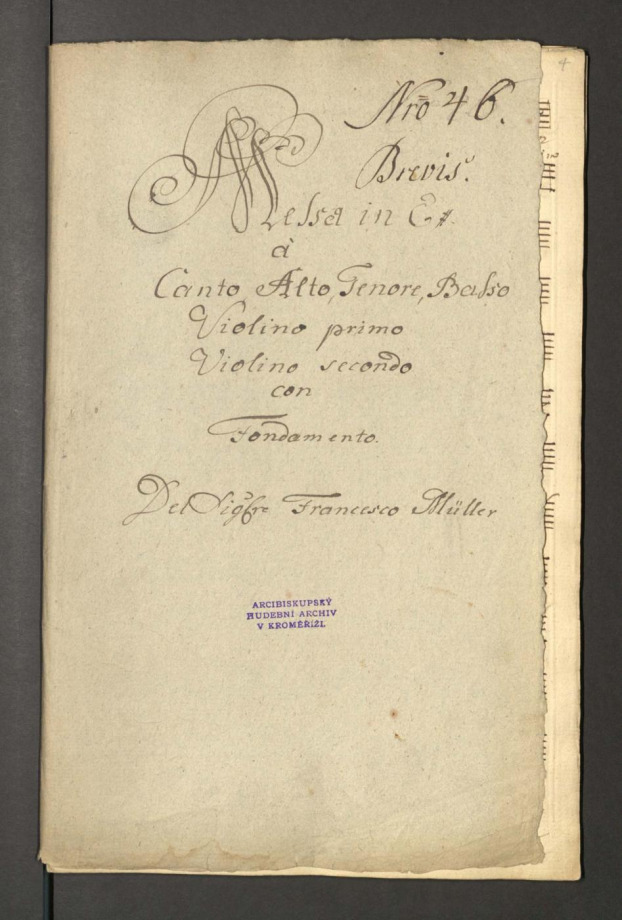 4
Nro 46.
Brevis.
Messa in C
à
Canto Alto, Tenore, Basso
Violino primo
Violino secondo
con
Fondamento.
Del Sigre Francesco Müller
ARCIBISKUPSKÝ
HUDEBNÍ ARCHIV
V KROMĚŘÍŽI.